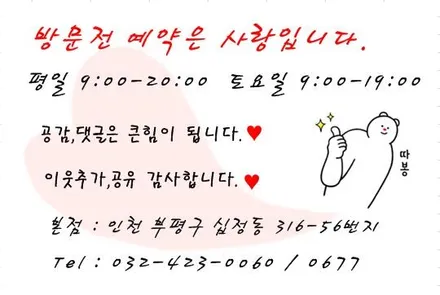 방문전 예약은 사랑입니다.
평일 9:00-20:00 토요일 9:00-19:00
공감,댓글은 큰힘이 됩니다.♥
이웃추가,공유 감사합니다.♥
따봉
본점 : 인천 부평구 십정동 316-56번지
Tel : 032-423-0060 / 0677